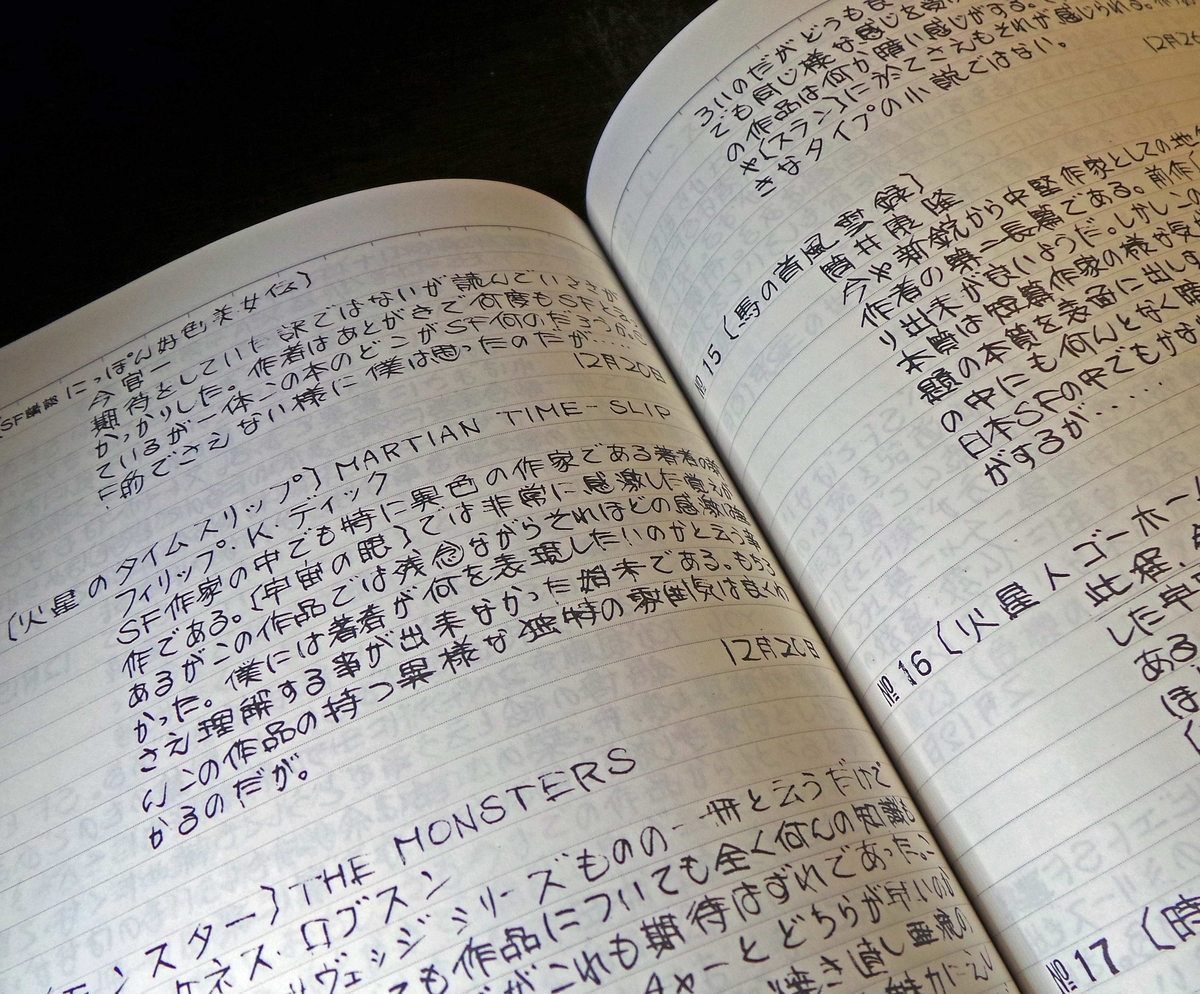 (SF
にっぽん好色美女伝〕
今官一
期待としていた訳ではないが読んでいささか
がっかりした。作者はあとがきで何度もSFと
ているが一体この本のどこがSF何のだろうか。
F的でさえない様に僕は思ったのだが……
12月20日
〔火星のタイムスリップ〕MARTIAN TIME-SLIP
フィリップ・K・ディック
SF作家の中でも特に異色の作家である著者の
作である。〔宇宙の眼〕では非常に感激した覚えが
あるがこの作品では残念ながらそれほどの感激は
かった。僕には著者が何を表現したいのかと云う事
さえ理解する事が出来なかった始末である。もちろ
んこの作品の持つ異様な独特の雰囲気は良くわ
かるのだが。
12月20日
ンスター〕THE MONSTERS
ケネス・ロブスン
ヴェッジシリーズものの一冊と云うだけで
ても作品についても全く何んの知識も
がこれも期待はずれであった。
ーとどちらが
直し
魅力
ろいのだがどうも
でも同じ様な感じを受け
の作品は何か暗い感じがする。
や〔スラン〕に於てさえもそれが感じられる。
さなタイプの小説ではない。
12月26
№15〔馬の首風雲録〕
筒井康隆
今や新鋭から中堅作家としての地
作者の第二長篇である。前作
り出来が良いようだ。しかしこの
本質は短篇作家の様な気
題の本質を表面に出しす
の中にも何んとなく
日本SFの中でもかな
がするが・・・・
№16〔火星人ゴーホー
此程、
した中
ある
ほ
№17〔時